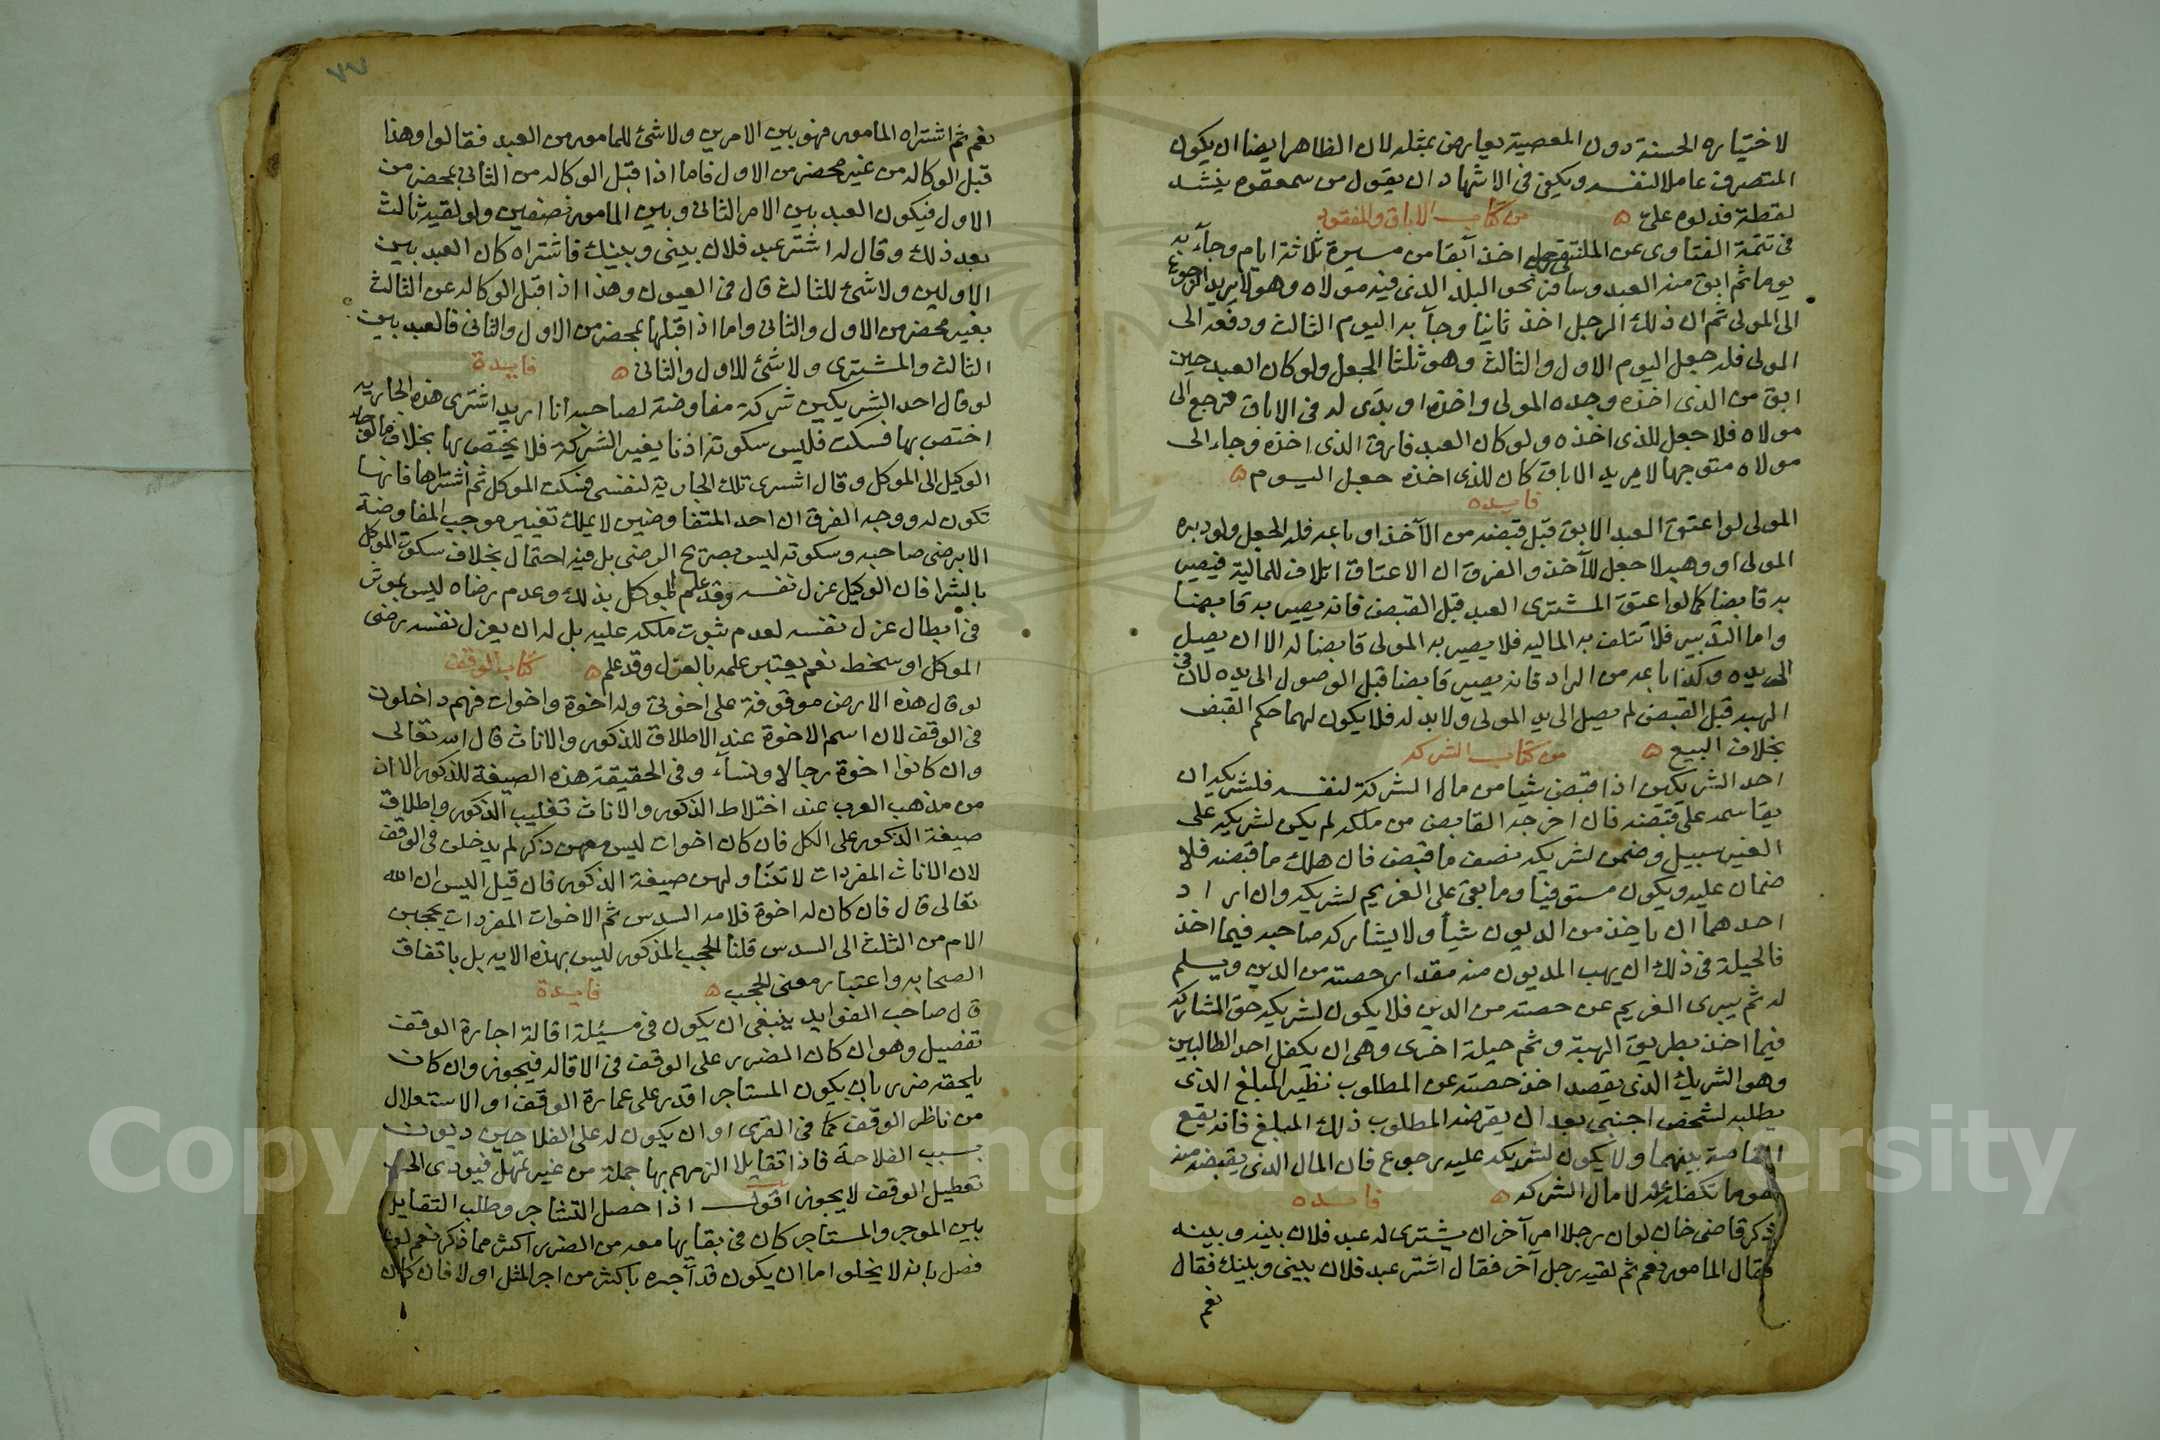 لاختياره الحسنة دون المعصية يعارض بمثله لان الظاهر ايضا ان يكون
المتصرف عاملا لنفسه ويكفي في الاشهاد ان يقول من سمعتموه ينشد
لقطة فدلوه علي ه من كتاب الاباق والمفقود
في تتمة الفتاوى عن الملتقى رجل اخذ آبقا من مسيرة ثلاثة ايام وجآء به
يوما ثم ابق منه العبد وسار نحو البلد الذي فيه مولاه وهو لا يريد الرجوع
الى المولى ثم ان ذلك الرجل اخذ ثانيا وجآ به اليوم الثالث ودفعه الى
المولى فله جعل اليوم الاول والثالث وهو ثلثا الجعل ولو كان العبد حين
ابق من الذي اخذه وجده المولى واخذه او بدى له في الاباق فرجع الى
مولاه فلا جعل للذي اخذه ولو كان العبد فارق الذي اخذه وجاء الى
مولاه متوجها لا يريد الاباق كان للذي اخذه جعل اليوم ه
فايده
المولى لو اعتق العبد الابق قبل قبضه من الآخذ او باعه فله الجعل ولو دبره
المولى او وهبه لا جعل للآخذ والفرق ان الاعتاق اتلاف للمالية فيصير
به قابضا كما لو اعتق المشترى العبد قبل القبض فانه يصير به قابضا
واما التدبير فلا تتلف به الماليه فلا يصير به المولى قابضا له الا ان يصل
الى يده وكذا باعه من الراد فانه يصير قابضا قبل الوصول الى يده لان في
الهبه قبل القبض لم يصل الى يد المولى ولا بد له فلا يكون لهما حكم القبض
بخلاف البيع ه من كتاب الشركه
احد الشريكين اذا قبض شيا من مال الشركة لنفسه فلشريكه ان
يقاسمه على قبضه فان اخرجه القابض من ملكه لم يكن لشريكه على
العين سبيل وضمن لشريكه نصف ما قبض فان هلك ما قبضه فلا
ضمان عليه ويكون مستوفيا وما بقى على الغريم لشريكه وان اراد
احدهما ان ياخذ من الديون شيأ ولا يشاركه صاحبه فيما اخذ
فالحيلة في ذلك ان يهب المديون منه مقدار حصته من الدين ويسلم
له ثم يبرى الغريم عن حصته من الدين فلا يكون لشريكه حق المشاركة
فيما اخذ بطريق الهبة وثم حيلة اخرى وهي ان يكفل احد الطالبين
وهو الشريك الذي يقصد اخذ حصته عن المطلوب نظير المبلغ الذي
يطلبه لشخص اجنبي بعد ان يقرضه المطلوب ذلك المبلغ فانه يقع
المقاصة بينهما ولا يكون لشريكه عليه رجوع فان المال الذي يقبضه منه
هو ما تكفل له لا مال الشركه ه فايده
ذكر قاضي خان لو ان رجلا امر آخر ان يشترى له عبد فلان بينه وبينه
فقال المامور نعم ثم لقيه رجل آخر فقال اشتر عبد فلان بيني وبينك فقال
نعم
نعم ثم اشتراه المامور فهو بين الامرين ولا شئ للمامور من العبد فقالوا وهذا
قبل الوكاله من غير محضر من الاول فاما اذا قبل الوكاله من الثاني بمحضر من
الاول فيكون العبد بين الامر الثاني وبين المامور نصفين ولو لقيه ثالث
بعد ذلك وقال له اشتر عبد فلان بيني وبينك فاشتراه كان العبد بين
الاولين ولا شئ للثالث قال في العيون وهذا اذا قبل الوكاله عن الثالث
بغير محضر من الاول والثاني واما اذا قبلها بمحضر من الاول والثاني فالعبد بين
الثالث والمشترى ولا شئ للاول والثاني ه فايدة
لو قال احد الشريكين شركة مفاوضة لصاحبه انا اريد اشترى هذه الجاريه
اختص بها فسكت فليس سكوته اذنا بغير الشركة فلا يختص بها بخلاف ما لو قال
الوكيل الى الموكل وقال اشترى تلك الجارية لنفسي فسكت الموكل ثم اشتراها فانها
تكون له ووجه الفرق ان احد المتفاوضين لا يملك تغيير موجب المفاوضة
الا برضى صاحبه وسكوته ليس بصريح الرضى بل فيه احتمال بخلاف سكوت الموكل
بالشرا فان الوكيل عزل نفسه وقد علم الموكل بذلك وعدم رضاه ليس بموثر
في ابطال عزل نفسه لعدم ثبوت ملكه عليه بل له ان يعزل نفسه رضى
الموكل او سخط نعم يعتبر علمه بالعزل وقد علم ه كتاب الوقف
لو قال هذه الارض موقوفة على اخوتي وله اخوة واخوات فهم داخلون
في الوقف لان اسم الاخوة عند الاطلاق للذكور والاناث قال الله تعالى
وان كانوا اخوة رجالا ونسآء وفي الحقيقة هذه الصيغة للذكور الا ان
من مذهب العرب عند اختلاط الذكور والاناث تغليب الذكور واطلاق
صيغة الذكور على الكل فان كان اخوات ليس معهن ذكر لم يدخلن في الوقف
لان الاناث المفردات لا تتناولهن صيغة الذكور فان قيل اليس ان الله
تعالى قال فان كان له اخوة فلامه السدس ثم الاخوات المفردات يحجبن
الام من الثلث الى السدس قلنا الحجب المذكور ليس بهذه الايه بل باتفاق
الصحابه واعتبار معنى الحجب ه فايدة
قال صاحب الفوايد ينبغى ان يكون في مسئلة اقالة اجارة الوقف
تفصيل وهو ان كان الضرر على الوقف في الاقاله فيجوز وان كان
يلحقه ضرر بان يكون المستاجر اقدر على عمارة الوقف او الاستغلال
من ناظر الوقف كما في القرى او ان يكون له على الفلاحين ديون
بسبب الفلاحة فاذا تقايلا الزمهم بها جملة من غير تمهل فيودى الى
تعطيل الوقف لا يجوز اقول اذا حصل التشاجر وطلب التقايل
بين الموجر والمستاجر كان في بقايها معه من الضرر اكثر مما ذكر نعم لو
فصل بانه لا يخلوا اما ان يكون قد آجره باكثر من اجر المثل او لا فان كان